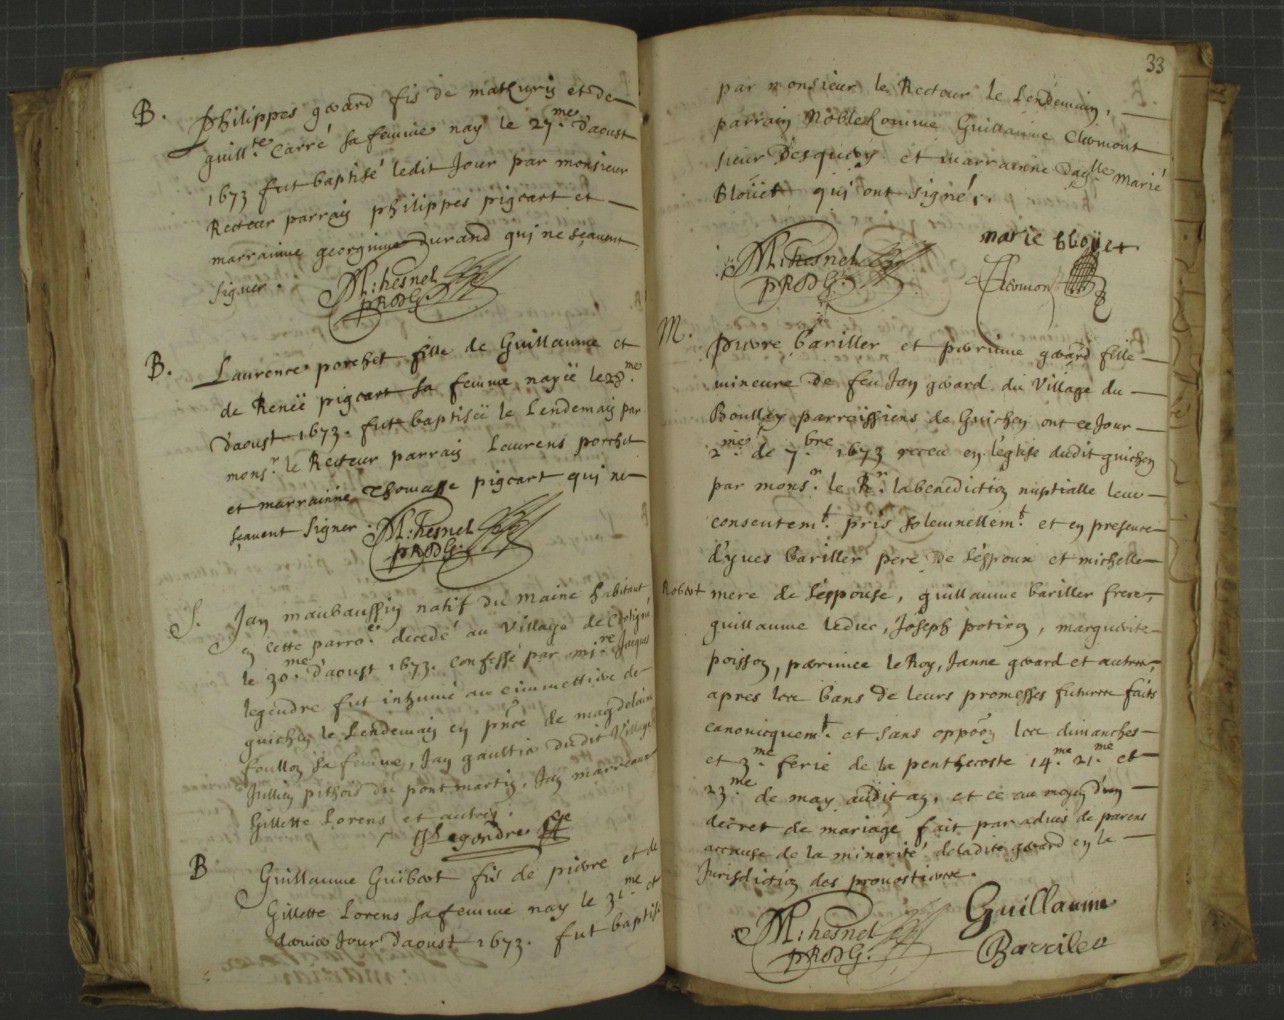 B. Philippes gerard fis de mathurin et de
guill.te Carré sa femme nay le 27.me d'aoust
1673 fut baptisé ledit Jour par monsieur
Recteur parrain philippes pigeart et
marrainne georginne Durand qui ne sçavent
signer.
M: hesnel
PRD G.
B. Laurence porchet fille de Guillaume et
de Reneë pigeart sa femme, nayë le 28.me
d'aoust 1673. fut baptiseë le Lendemain par
mons.r le Recteur parrain Laurens porchet
et marrainne Thomasse pigeart qui ne
sçavent signer.
M: hesnel
PRD G.
S. Jan maubaussin natif du maine habitant
en cette parro.e decedé au village de
le 30.me d'aoust 1673. Confessé par mi.re Jacques
legendre fut inhumé au cimmettiere de
guichen le Lendemain en pnce de magdelaine
foullon sa femme, Jan gaultier dudit Village
Jullien pithois du pontmartin, Jan
Gillette Lorens et autres.
Legendre
B Guillaume Guibert fis de pierre et de
Gillette Lorens sa femme nay le 31.me et
dernier Jour d'aoust 1673. fut baptisé
33
par monsieur le Recteur le Lendemain,
parrain Noble homme Guillaume Clermont
sieur Desquery et marrainne Da.lle Marie
Bloüet qui ont signé.
marie bloüet
M: hesnel
PRD G.
Clermon
M. pierre bariller et perrinne gerard fille
mineure de feu Jan gerard du Village du
Boullay parroissiens de Guichen ont ce Jour
2.me de 7.bre 1673 receu en l'eglise dudit guichen
par mons.r le R.r la benediction nuptialle leur
consentem.t pris solemnellem.t et en presence
d'yves bariller pere de l'espoux et michelle
Robert mere de l'espouse, guillaume bariller frere
guillaume leduc, Joseph potiron, marguerite
poisson, perrinne le Roy, Janne gerard et autres,
apres les bans de leurs promesses futures faits
canonicquem.t et sans oppoon les dimanches
et 3.me ferie de la penthecoste 14.me 21.me et
23.me de may audit an, et ce au moyen d'un
decret de mariage fait par advis de parens
accause de la minorité deladite gerard en la
Jurisdiction des pronostieres.
M: hesnel
PRD G.
Guillaume
Barriler